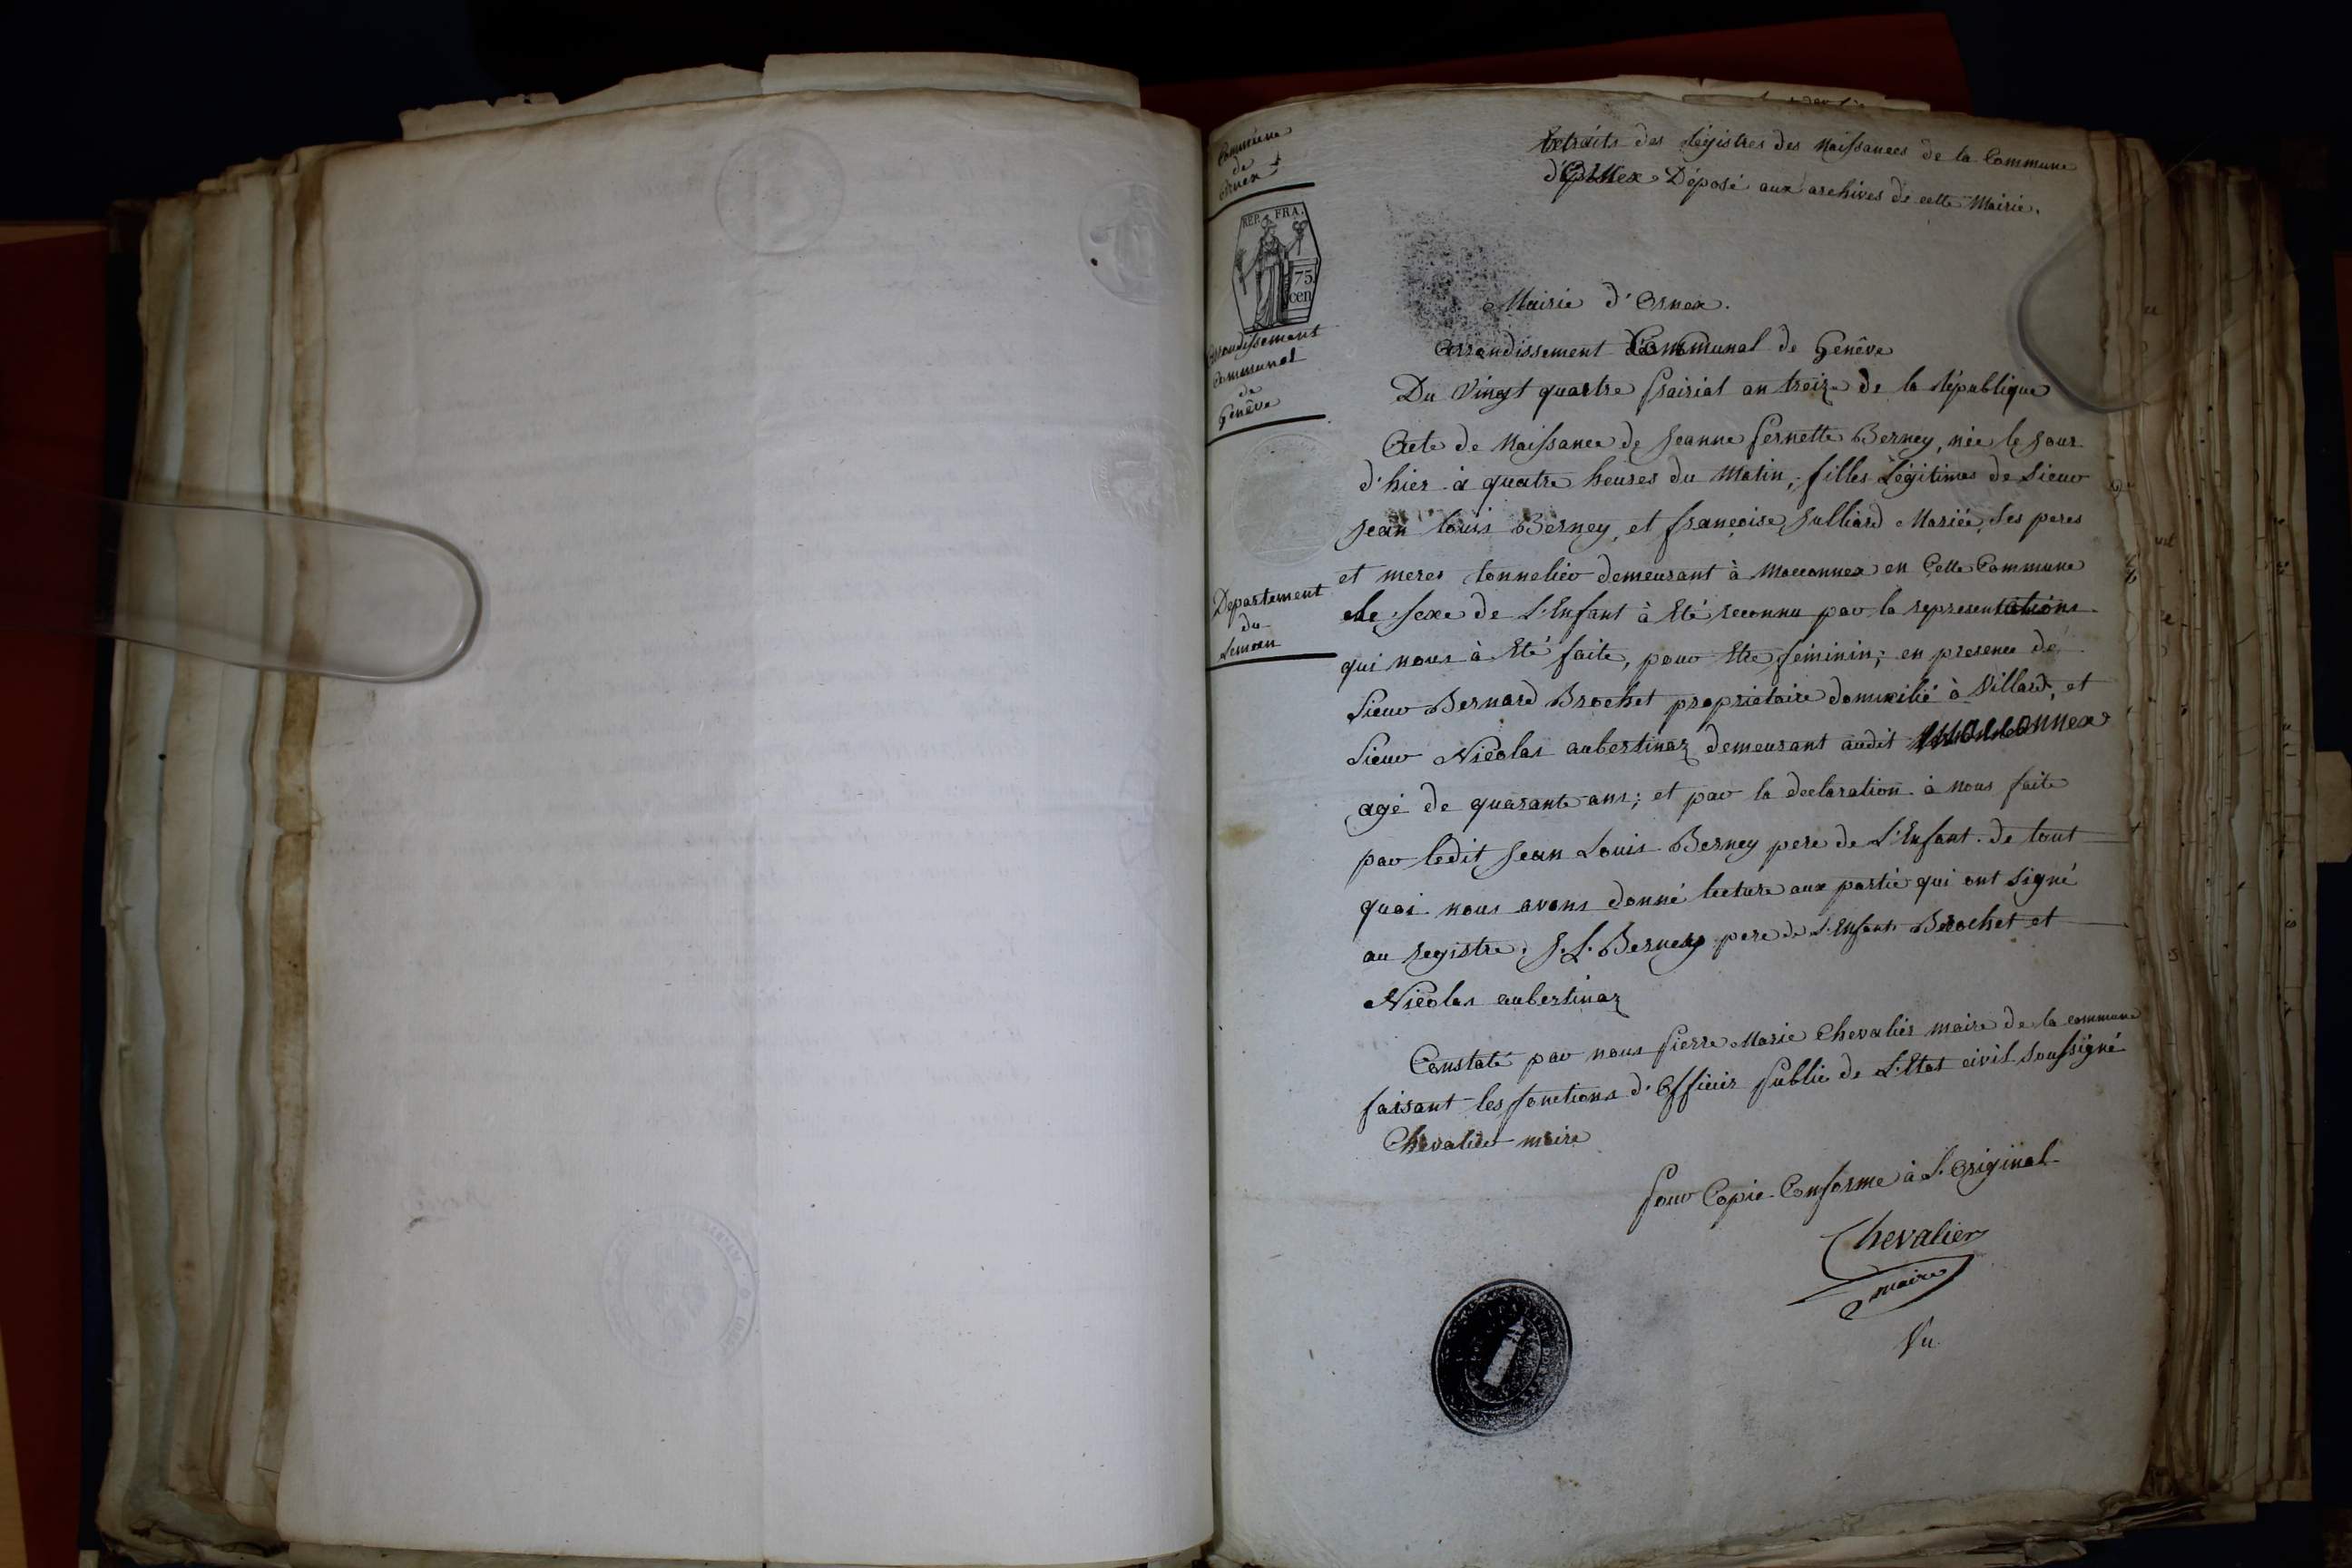 Commune
de
Ornex
REP. FRA.
75
cen
Arrondissement
Communal
de
Genêve
Departement
du
Leman
Extraits des Régistres des Naissances de la Commune
d'Ornex Déposé aux archives de cette Mairie.
Mairie d'Ornex.
Arrondissement Communal de Genêve
Du Vingt quatre Prairial an treize de la République
Acte de Naissance de Jeanne Pernette Berney, née le Jour
d'hier à quatre heures du Matin, filles Légitimes de Sieur
Jean Louis Berney, et françoise Julliard Mariée, Ses peres
et meres tonnelier demeurant à Maconnex en Cette Commune
Le Sexe de L'Enfant à Eté reconnu par la representations
qui nous à Eté faite, pour Etre feminin; en presence de
Sieur Bernard Brochet proprietaire domicilié à Villard, et
Sieur Nicolas aubertinaz demeurant audit Maconnex
agé de quarante ans; et par la declaration à nous faite
par ledit Jean Louis Berney pere de L'Enfant. de tout
quoi nous avons donné lecture aux partie qui ont Signé
au registre. J. L. Berney pere de L'Enfant Brochet et
Nicolas aubertinaz
Constaté par nous Pierre Marie Chevalier maire de la commune
faisant les fonctions d'Officier Public de L'Etat civil Soussigné
Chevalier maire
Pour Copie Conforme à L'Original
Chevalier
maire
Vu